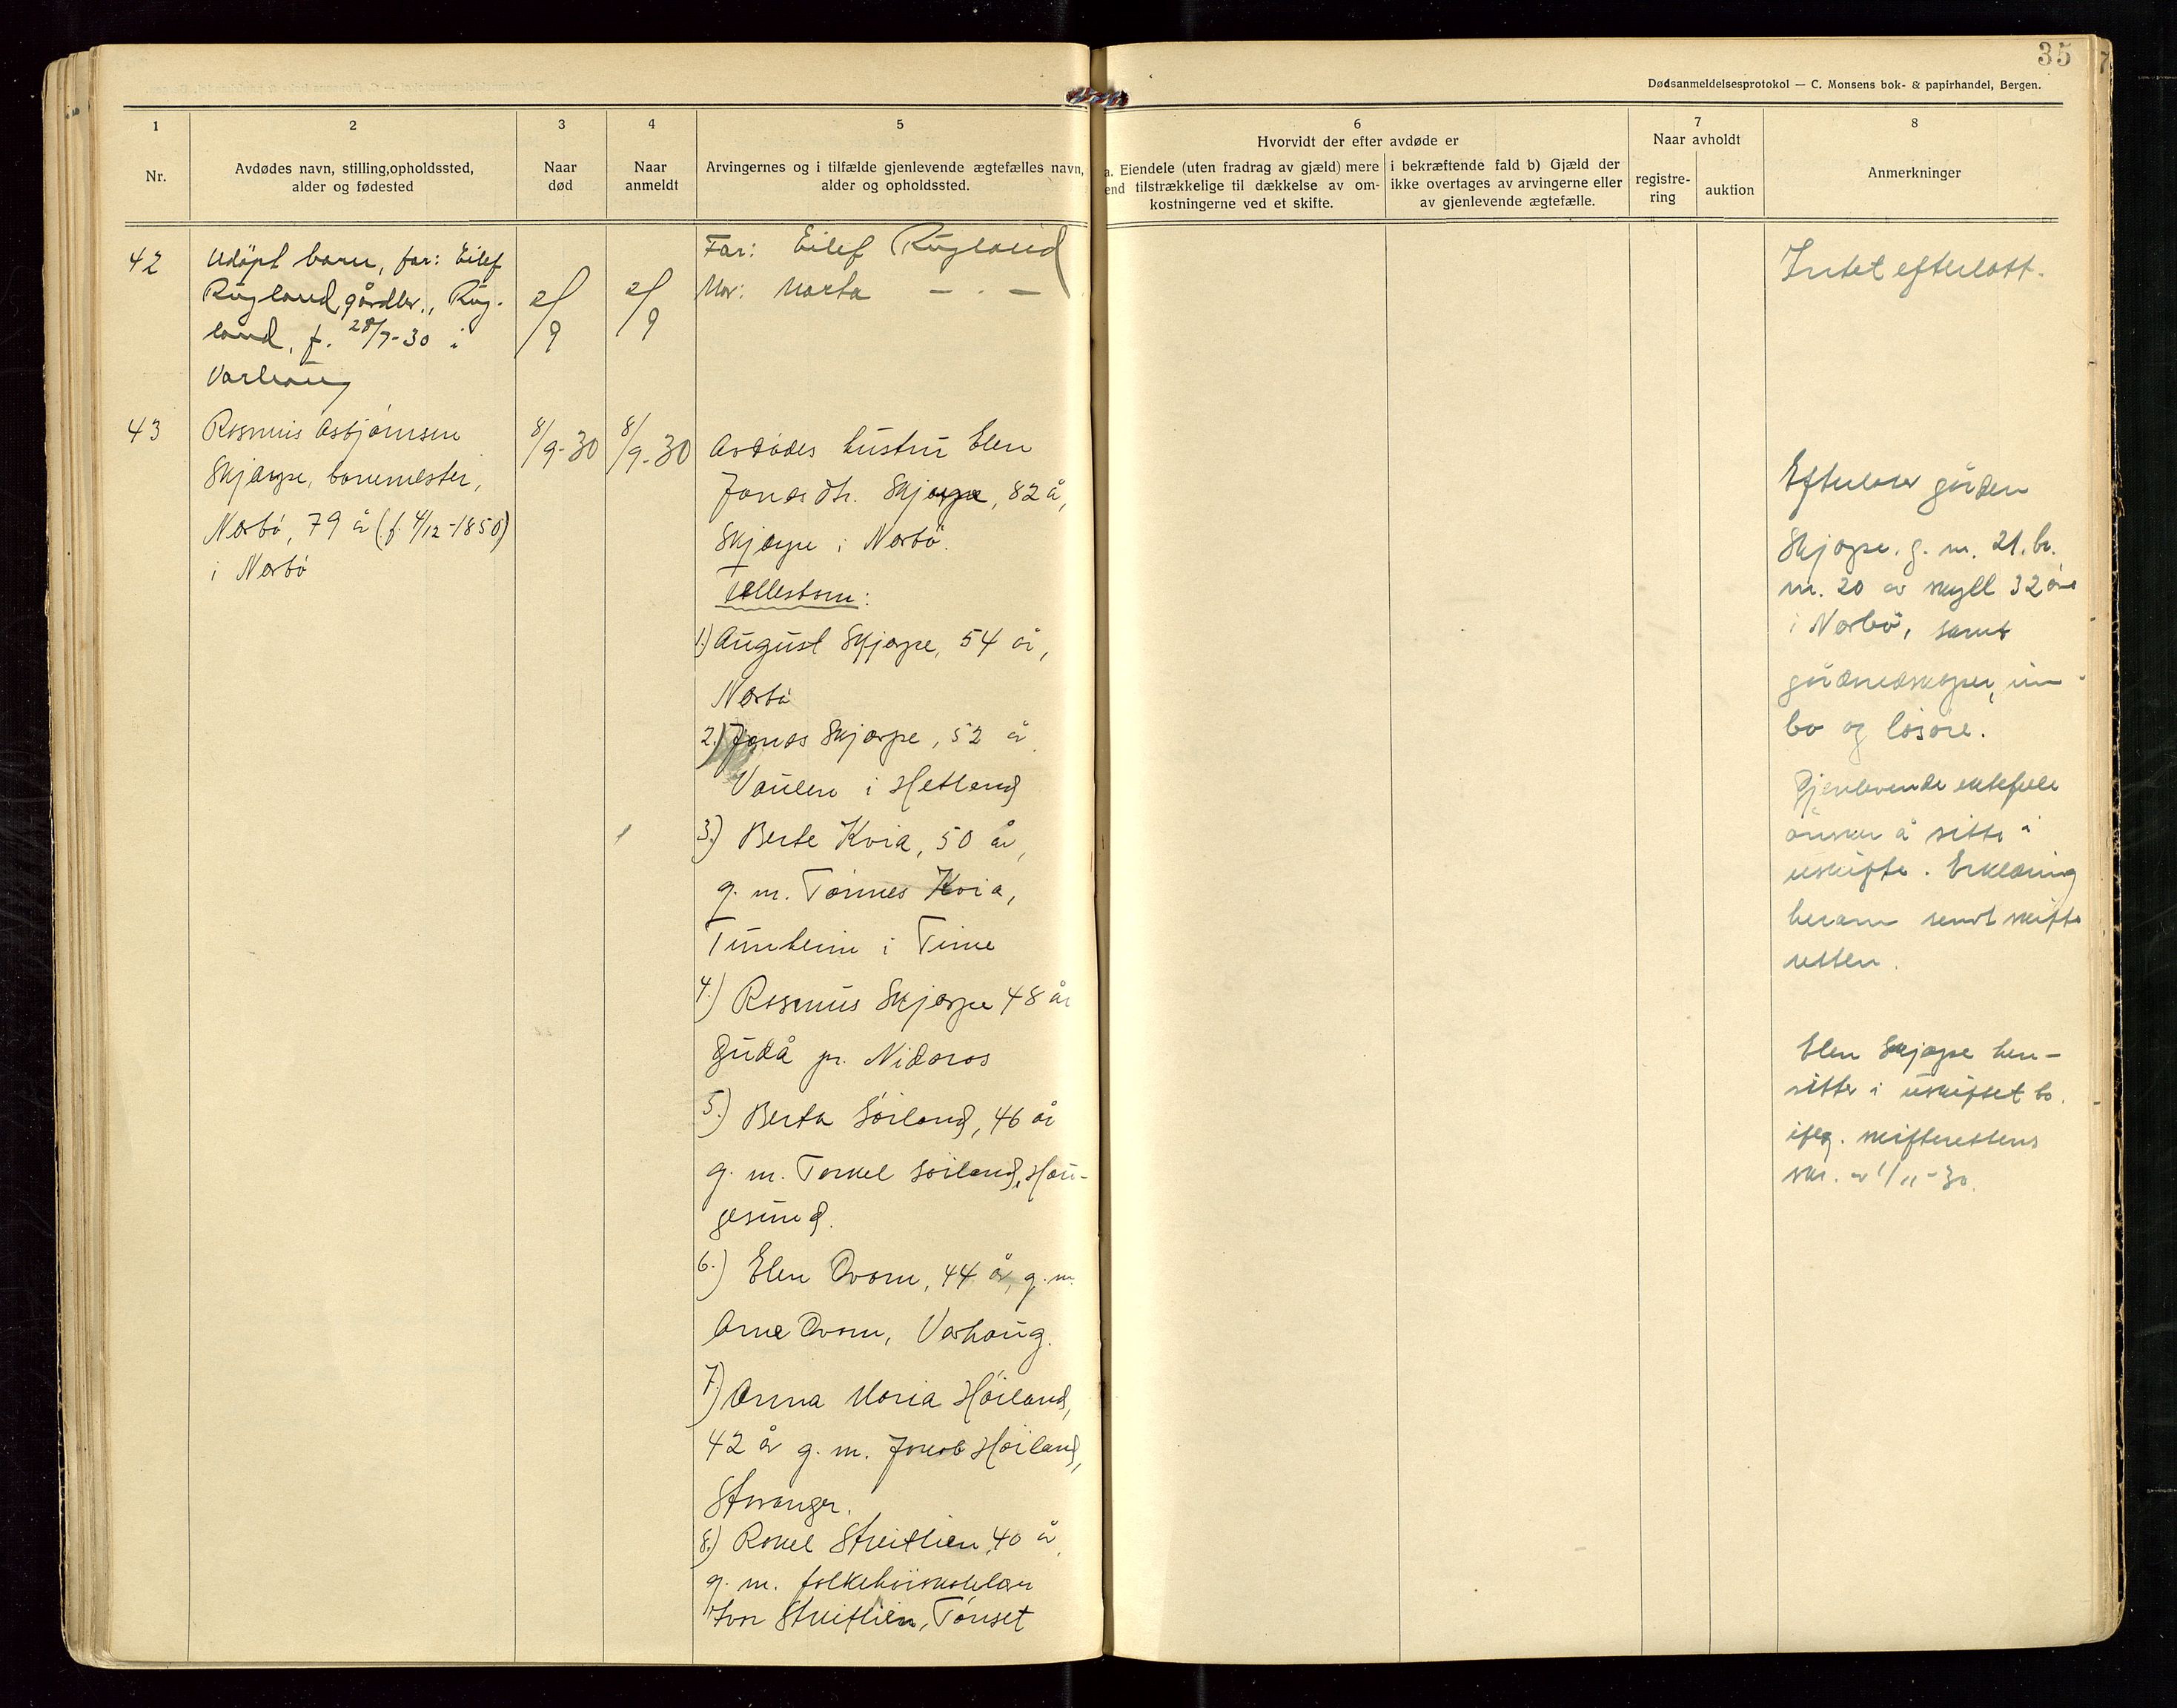 35
Dødsanmeldelsesprotokol — C. Monsens bok- & papirhandel, Bergen.
1
Nr.
2
Avdødes navn, stilling, opholdssted,
alder og fødested
3
Naar
død
4
Naar
anmeldt
5
Arvingernes og i tilfælde gjenlevende ægtefælles navn,
alder og opholdssted.
6
Hvorvidt der efter avdøde er
a. Eiendele (uten fradrag av gjæld) mere
end tilstrækkelige til dækkelse av om-
kostningerne ved et skifte.
i bekræftende fald b) Gjæld der
ikke overtages av arvingerne eller
av gjenlevende ægtefælle.
7
Naar avholdt
registre-
ring
auktion
8
Anmerkninger
42
Udöpt barn, far: Eilef
Rugland, gårdbr., Rug-
land, f. 28/7-30 i
Varhaug
2/9
2/9
Far: Eilef Rugland
Mor: Marta — . —
Intet efterlatt.
43
Rasmus Asbjørnsen
Skjærpe, banemester,
Nærbö, 79 år (f. 4/12-1850)
i Nærbö
8/9-30
8/9-30
Avdödes hustru Elen
Jonasdtr. Skjærpe, 82 år,
Skjærpe i Nærbö.
Fellesbarn:
1.) August Skjærpe, 54 år,
Nærbö
2.) Jonas Skjærpe, 52 år
Vaulen i Hetland
3.) Berte Kvia, 50 år,
g. m. Tönnes Kvia,
Tunheim i Time
4.) Rasmus Skjærpe 48 år
Gudå pr. Nidaros
5.) Berta Söiland, 46 år
g. m. Torkel Söiland, Hau-
gesund.
6.) Elen Ovam, 44 år, g. m.
Arne Ovam, Varhaug.
7.) Anna Maria Höiland,
42 år g. m. Jakob Höiland,
Stavanger.
8.) Rakel Streitlien, 40 år,
g. m. folkehöiskolelærer
Ivar Streitlien, Tönset
Efterlater gården
Skjærpe. g. nr. 21. br.
nr. 20 av skyll 32 öre
i Nærbö, samt
gårdsredskaper, inn-
bo og lösöre.
Gjenlevende ektefelle
önsker å sitte i
uskifte. Erklæring
herom sendt skifte
retten.
Elen Skjærpe hen-
sitter i uskiftet bo.
iflg. skifterettens
skr. av 1/11-30.